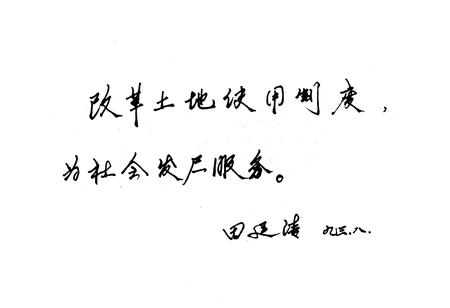 改革土地使用制度，
为社会发展服务。
田延清 九三.八.